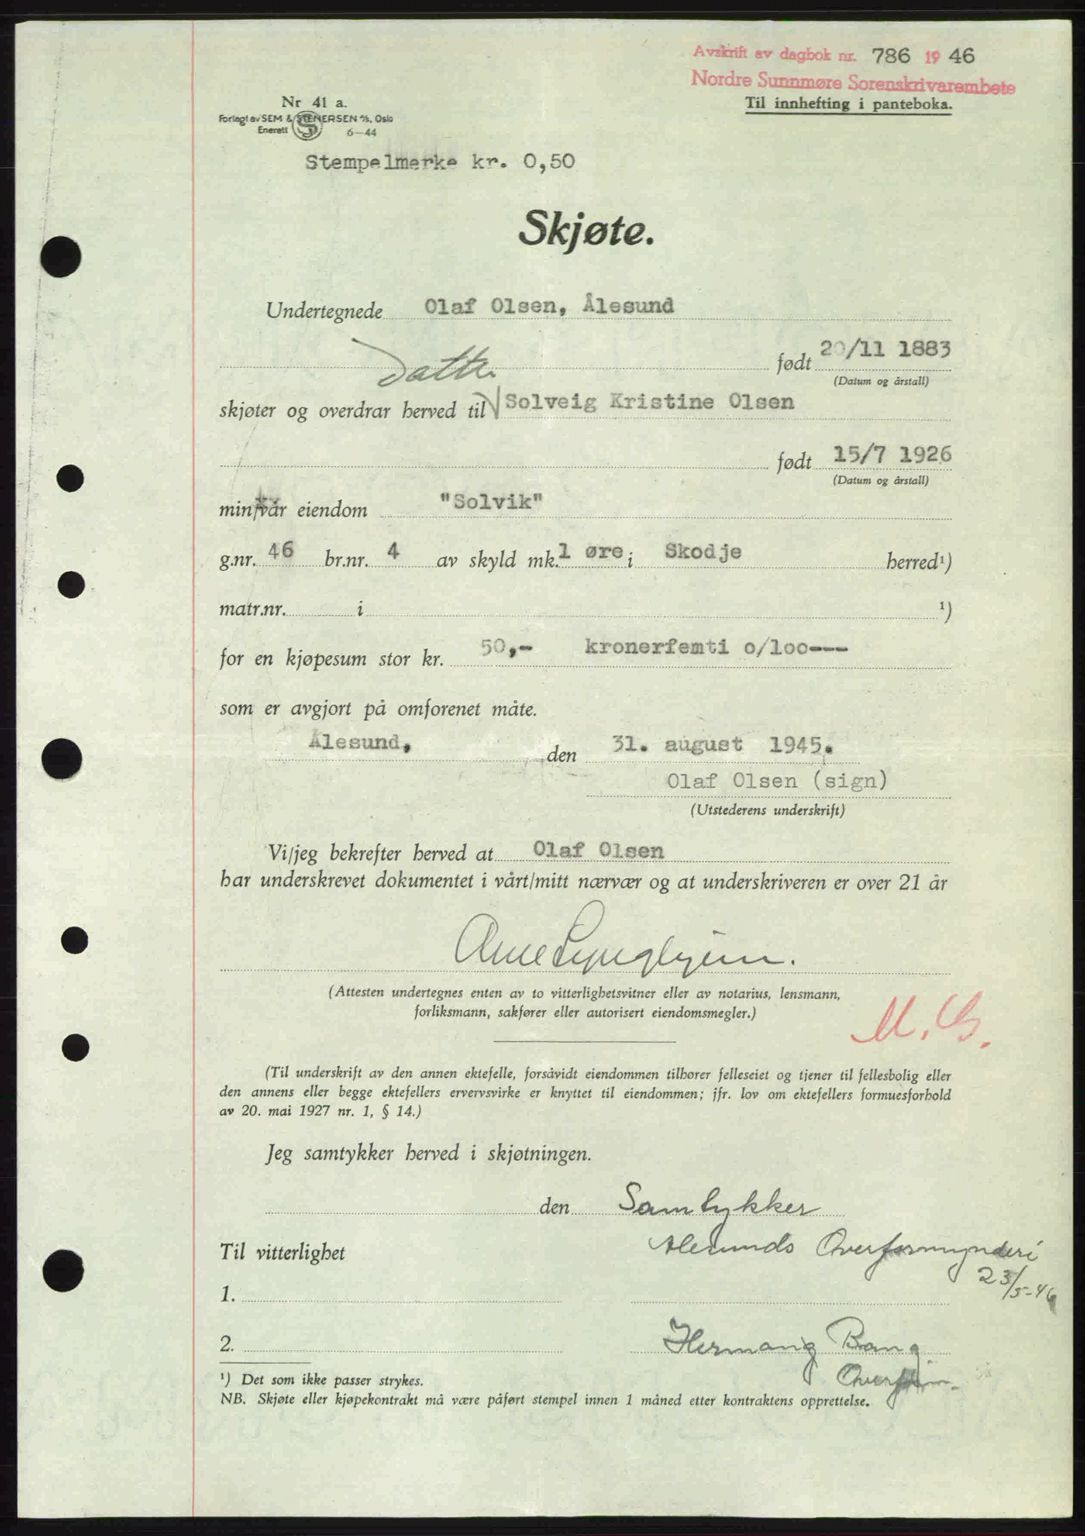 Avskrift av dagbok nr. 786 1946
Nordre Sunnmøre Sorenskrivarembete
Til innhefting i panteboka.
Nr 41 a.
Forlagt av SEM & STENERSEN A/S, Oslo
Enerett 6-44
Stempelmerke kr. 0,50
Skjøte.
Undertegnede Olaf Olsen, Ålesund
født 20/11 1883
(Datum og årstall)
datter
skjøter og overdrar herved til Solveig Kristine Olsen
født 15/7 1926
(Datum og årstall)
min/vår eiendom "Solvik"
g.nr. 46 br.nr. 4 av skyld mk. 1 øre i Skodje herred¹)
matr.nr. i ¹)
for en kjøpesum stor kr. 50,- kronerfemti o/loo---
som er avgjort på omforenet måte.
Ålesund, den 31. august 1945.
Olaf Olsen (sign)
(Utstederens underskrift)
Vi/jeg bekrefter herved at Olaf Olsen
har underskrevet dokumentet i vårt/mitt nærvær og at underskriveren er over 21 år
(Attesten undertegnes enten av to vitterlighetsvitner eller av notarius, lensmann,
forliksmann, sakfører eller autorisert eiendomsmegler.)
M. G.
(Til underskrift av den annen ektefelle, forsåvidt eiendommen tilhører felleseiet og tjener til fellesbolig eller
den annens eller begge ektefellers ervervsvirke er knyttet til eiendommen; jfr. lov om ektefellers formuesforhold
av 20. mai 1927 nr. 1, § 14.)
Jeg samtykker herved i skjøtningen.
den Samtykker
Til vitterlighet Ålesunds Overformynderi
23/5-46
1.
2. Hermang Bang
Overform.
¹) Det som ikke passer strykes.
NB. Skjøte eller kjøpekontrakt må være påført stempel innen 1 måned etter kontraktens opprettelse.